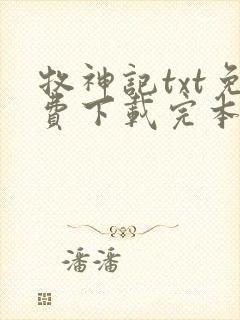 牧神記txt免
費下載完本
潘潘